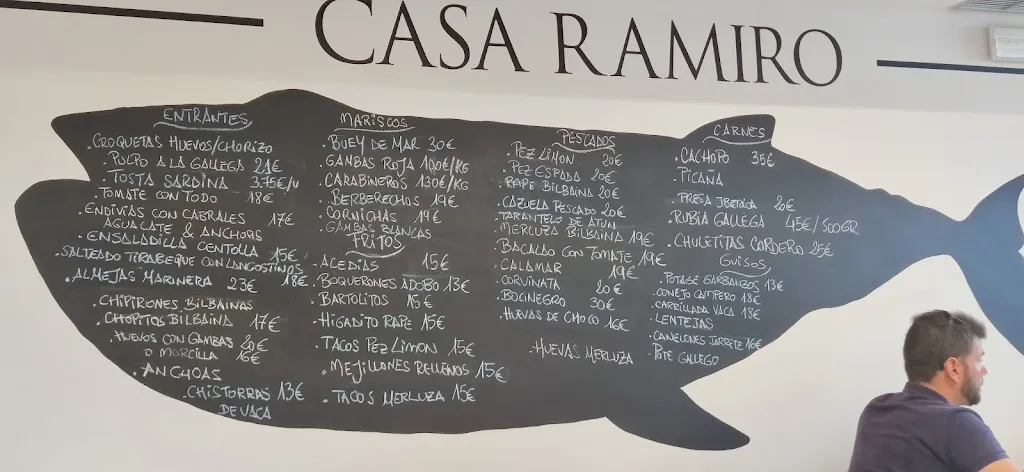 CASA RAMIRO
ENTRANTES
.CROQUETAS HUEVOS/CHORIZO
.PULPO A LA GALLEGA 21€
.TOSTA SARDINA 3.75€/U
.TOMATE CON TODO 18€
.ENDIVIAS CON CABRALES 17€
AGUACATE & ANCHOAS
.ENSALADILLA CENTOLLA 15€
SALTEADO TIRABEQUE CON LANGOSTINOS 18€
.ALMEJAS MARINERA 23€
.CHIPIRONES BILBAINAS
.CHOPITOS BILBAINA 17€
.HUEVOS CON GAMBAS 20€
O MORCILLA 16€
.ANCHOAS
.CHISTORRAS 13€
DE VACA
MARISCOS
.BUEY DE MAR 30€
.GAMBAS ROJA 100€/KG
.CARABINEROS 130€/KG
.BERBERECHOS 19€
.CORNICHAS 19€
.GAMBAS BLANCAS
FRITOS
.ACEDIAS 15€
.BOQUERONES ADOBO 13€
.BARTOLITOS 15€
.HIGADITO RAPE 15€
.TACOS PEZ LIMON 15€
.MEJILLONES RELLENOS 15€
.TACOS MERLUZA 15€
PESCADOS
.PEZ LIMON 20€
.PEZ ESPADA 20€
.RAPE BILBAINA 20€
.CAZUELA PESCADO 20€
.TARANTELO DE ATUN
.MERLUZA BILBAINA 19€
.BACALAO CON TOMATE 19€
.CALAMAR 19€
.CORVINATA 20€
.BOCINEGRO 30€
.HUEVAS DE CHOCO 16€
.HUEVAS MERLUZA
CARNES
.CACHOPO 35€
.PICAÑA
.PRESA IBERICA 20€
.RUBIA GALLEGA 45€/500GR
.CHULETITAS CORDERO 25€
GUISOS
.POTAGE GARBANZOS 13€
.CONEJO CAMPERO 18€
.CARRILLADA VACA 18€
.LENTEJAS
.CANELONES JARRETE 16€
.POTE GALLEGO